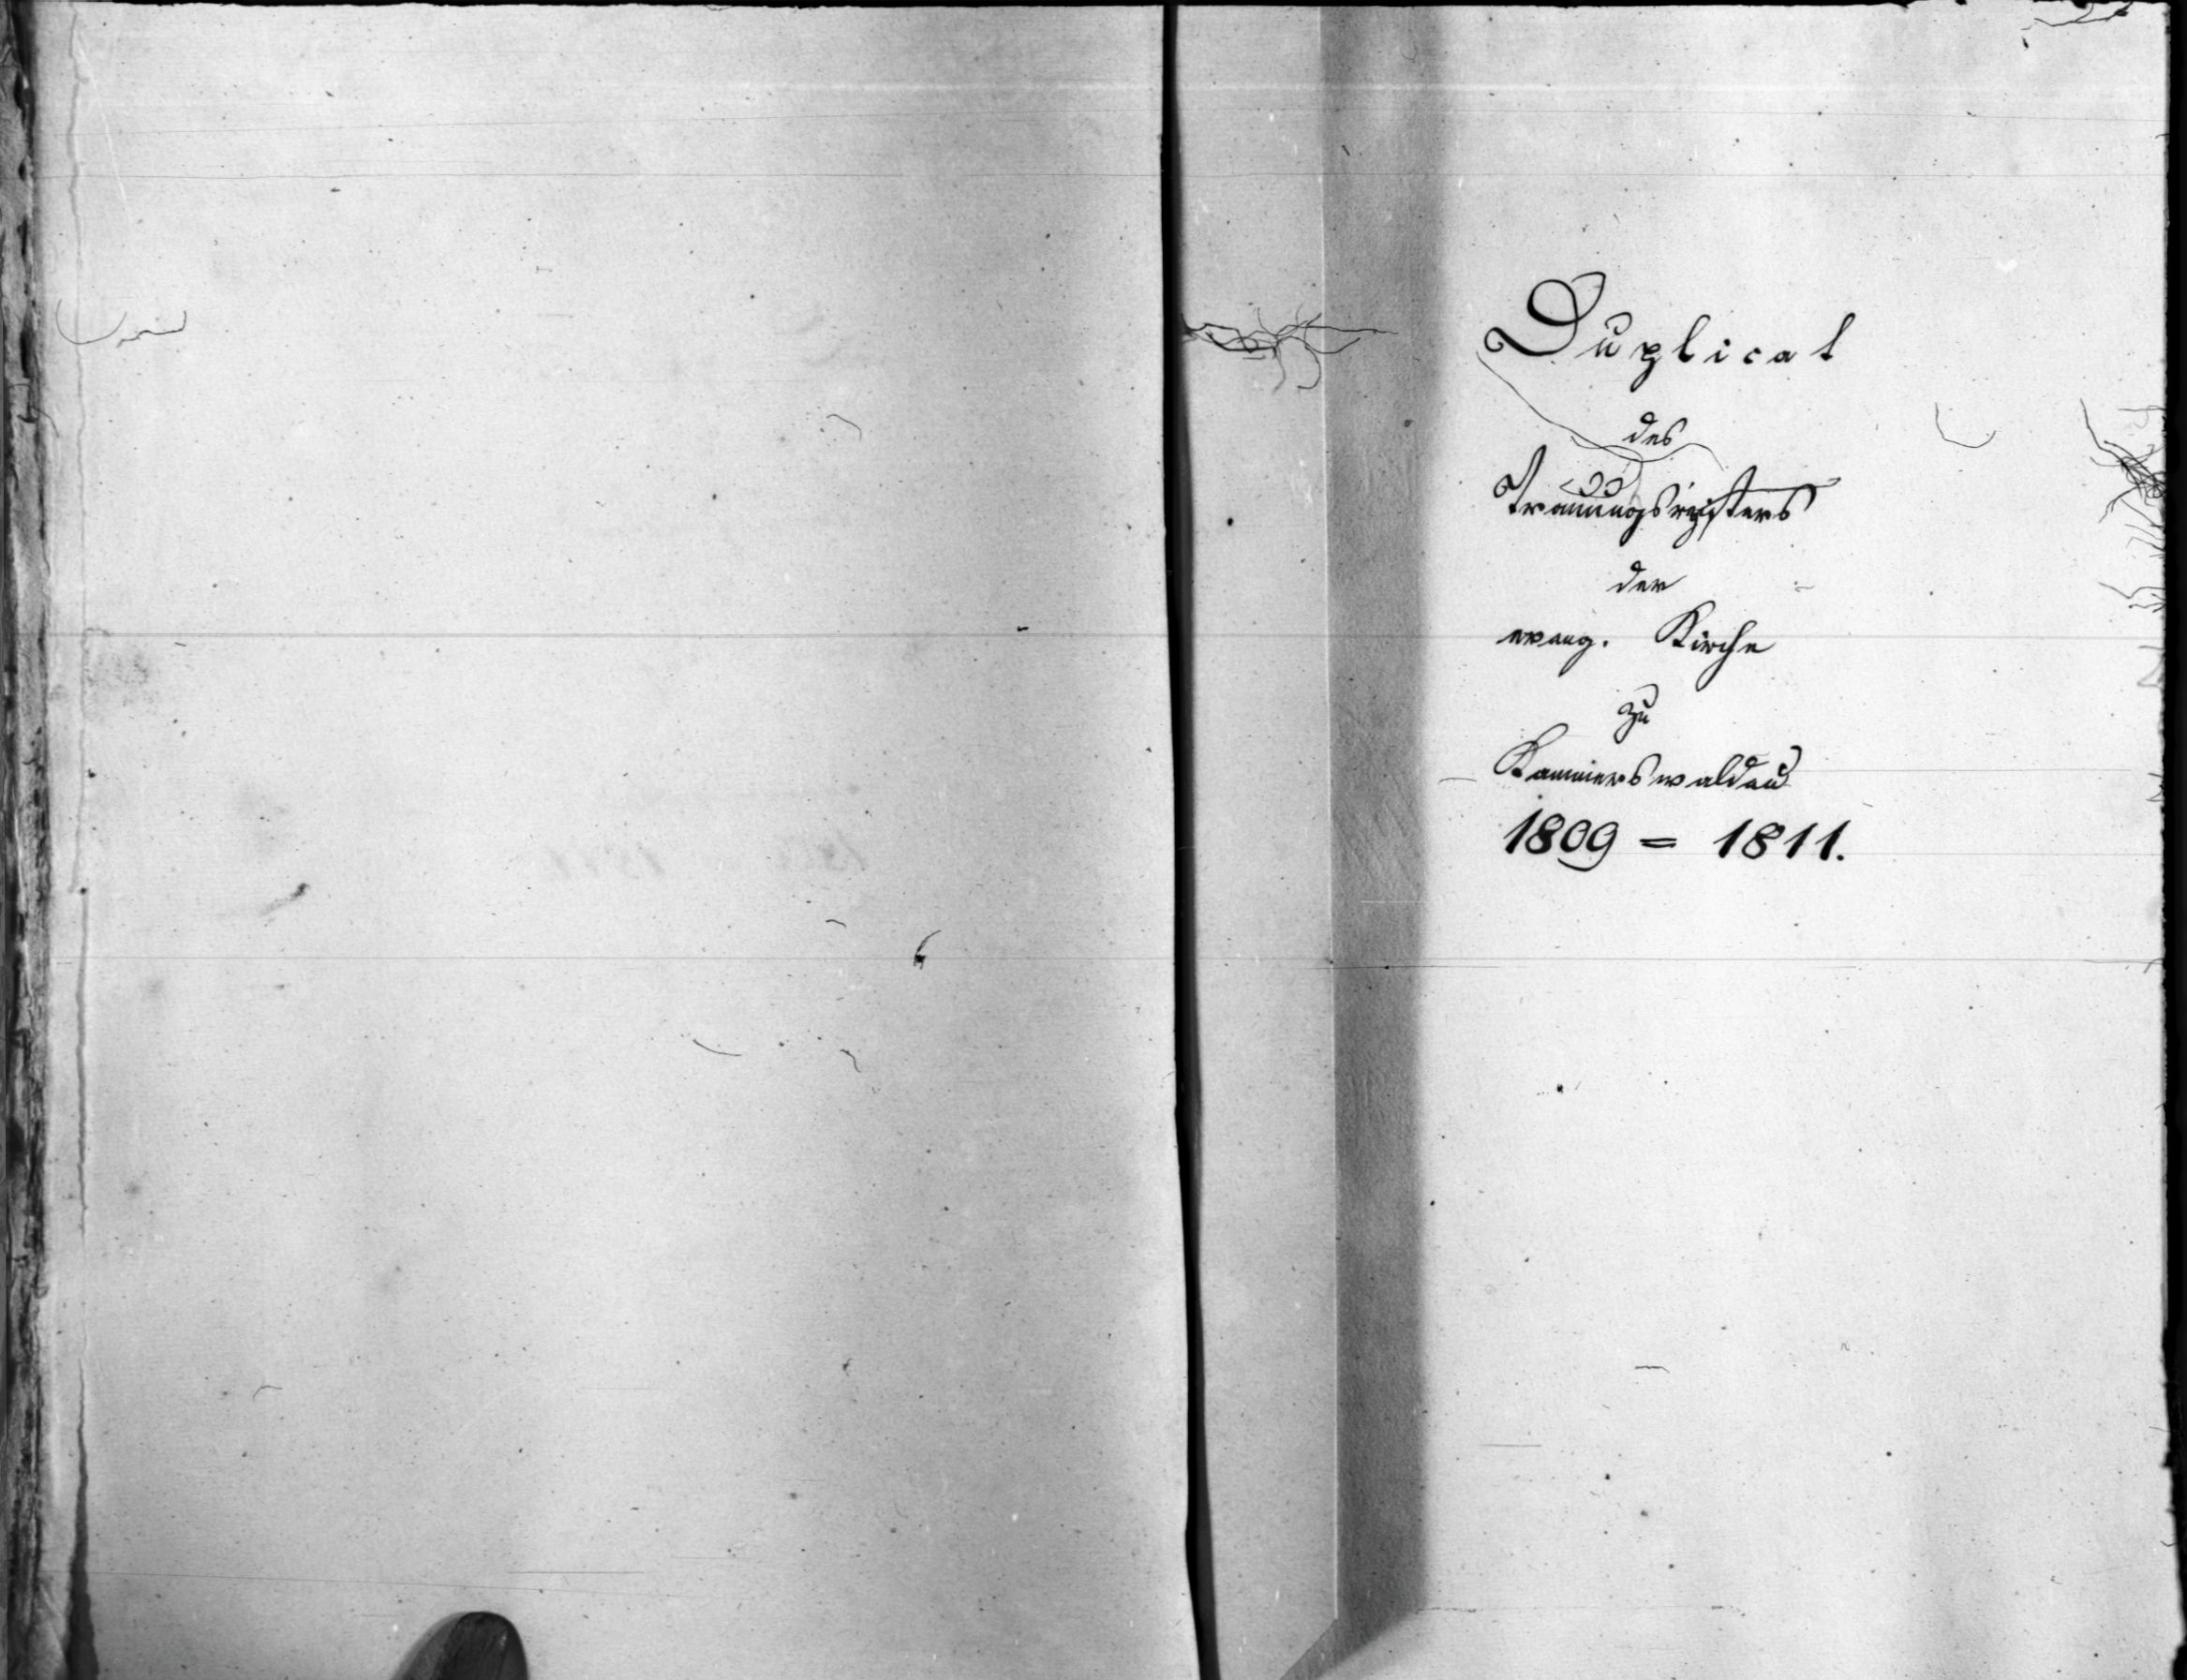 Duplicat
des
Trauungsregisters
der
evang. Kirche
zu
Kammerswaldau
1809 = 1811.